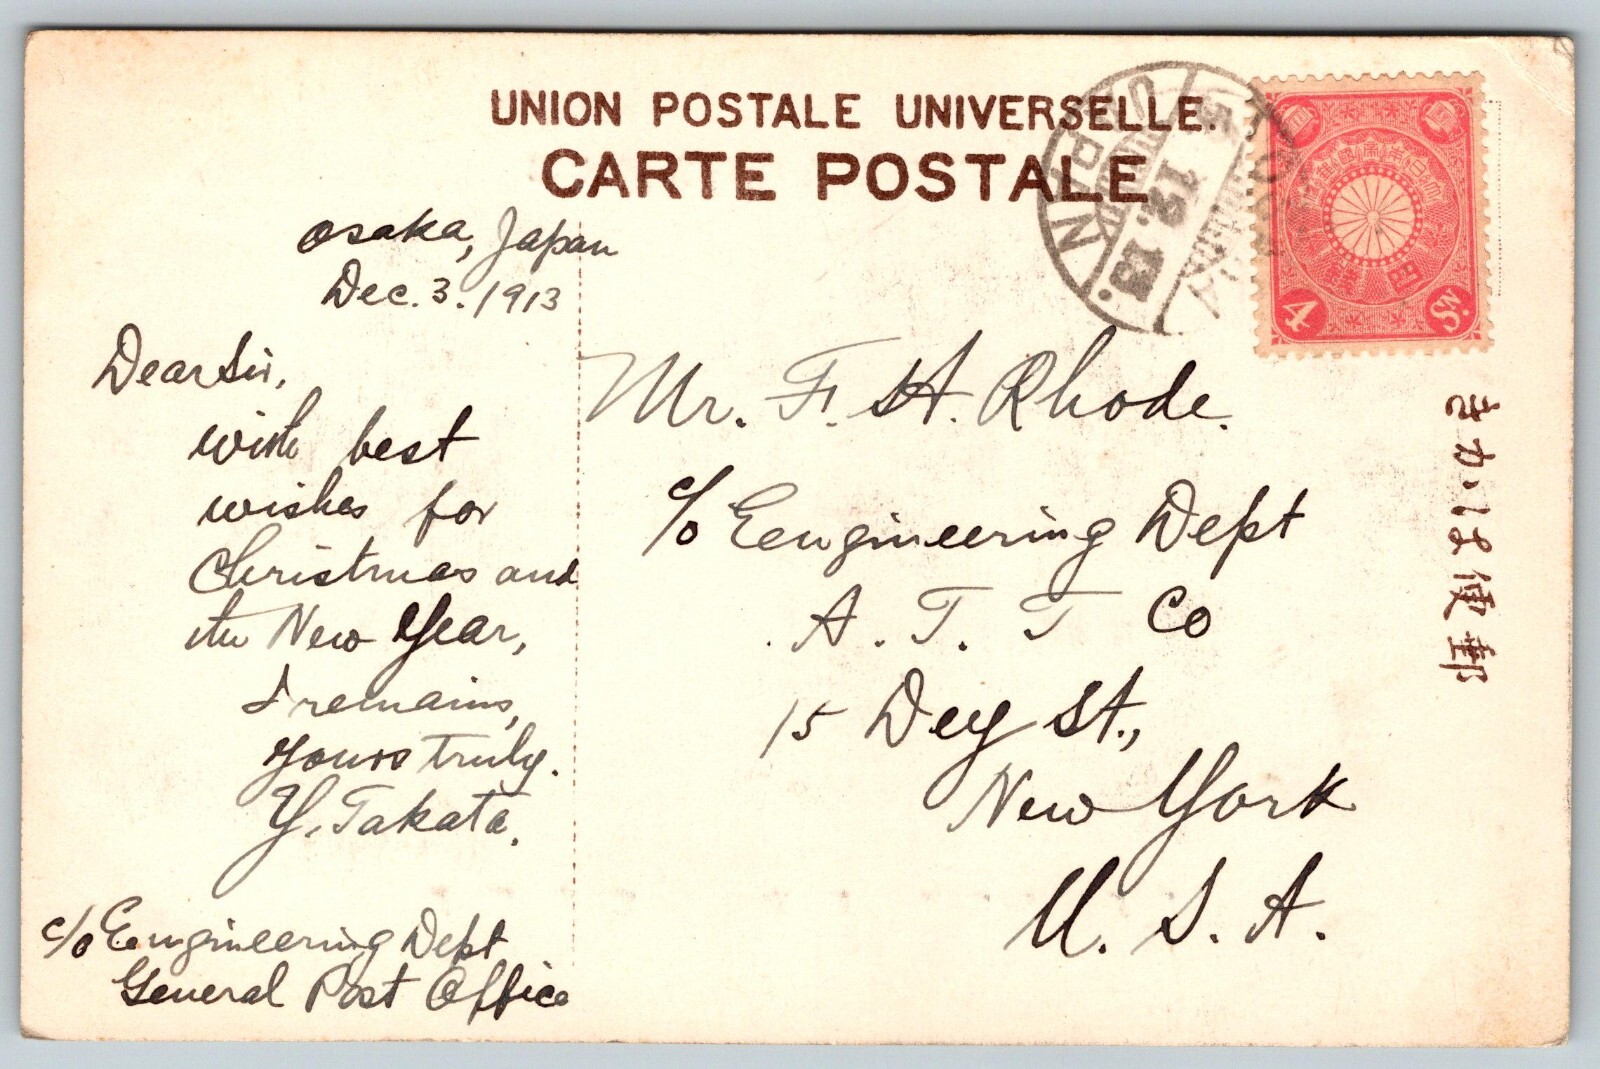 UNION POSTALE UNIVERSELLE.
CARTE POSTALE
Osaka, Japan
Dec. 3. 1913
Dear Sir,
with best
wishes for
Christmas and
the New Year,
I remains,
Yours truly.
Y. Takata.
c/o Eengineering Dept
General Post Office
Mr. F. H. Rhode.
c/o Eengineering Dept
A. T. T Co
15 Dey St.,
New York
U. S. A.
5.12.13.
JAPAN
4
Sn.
きかは便郵